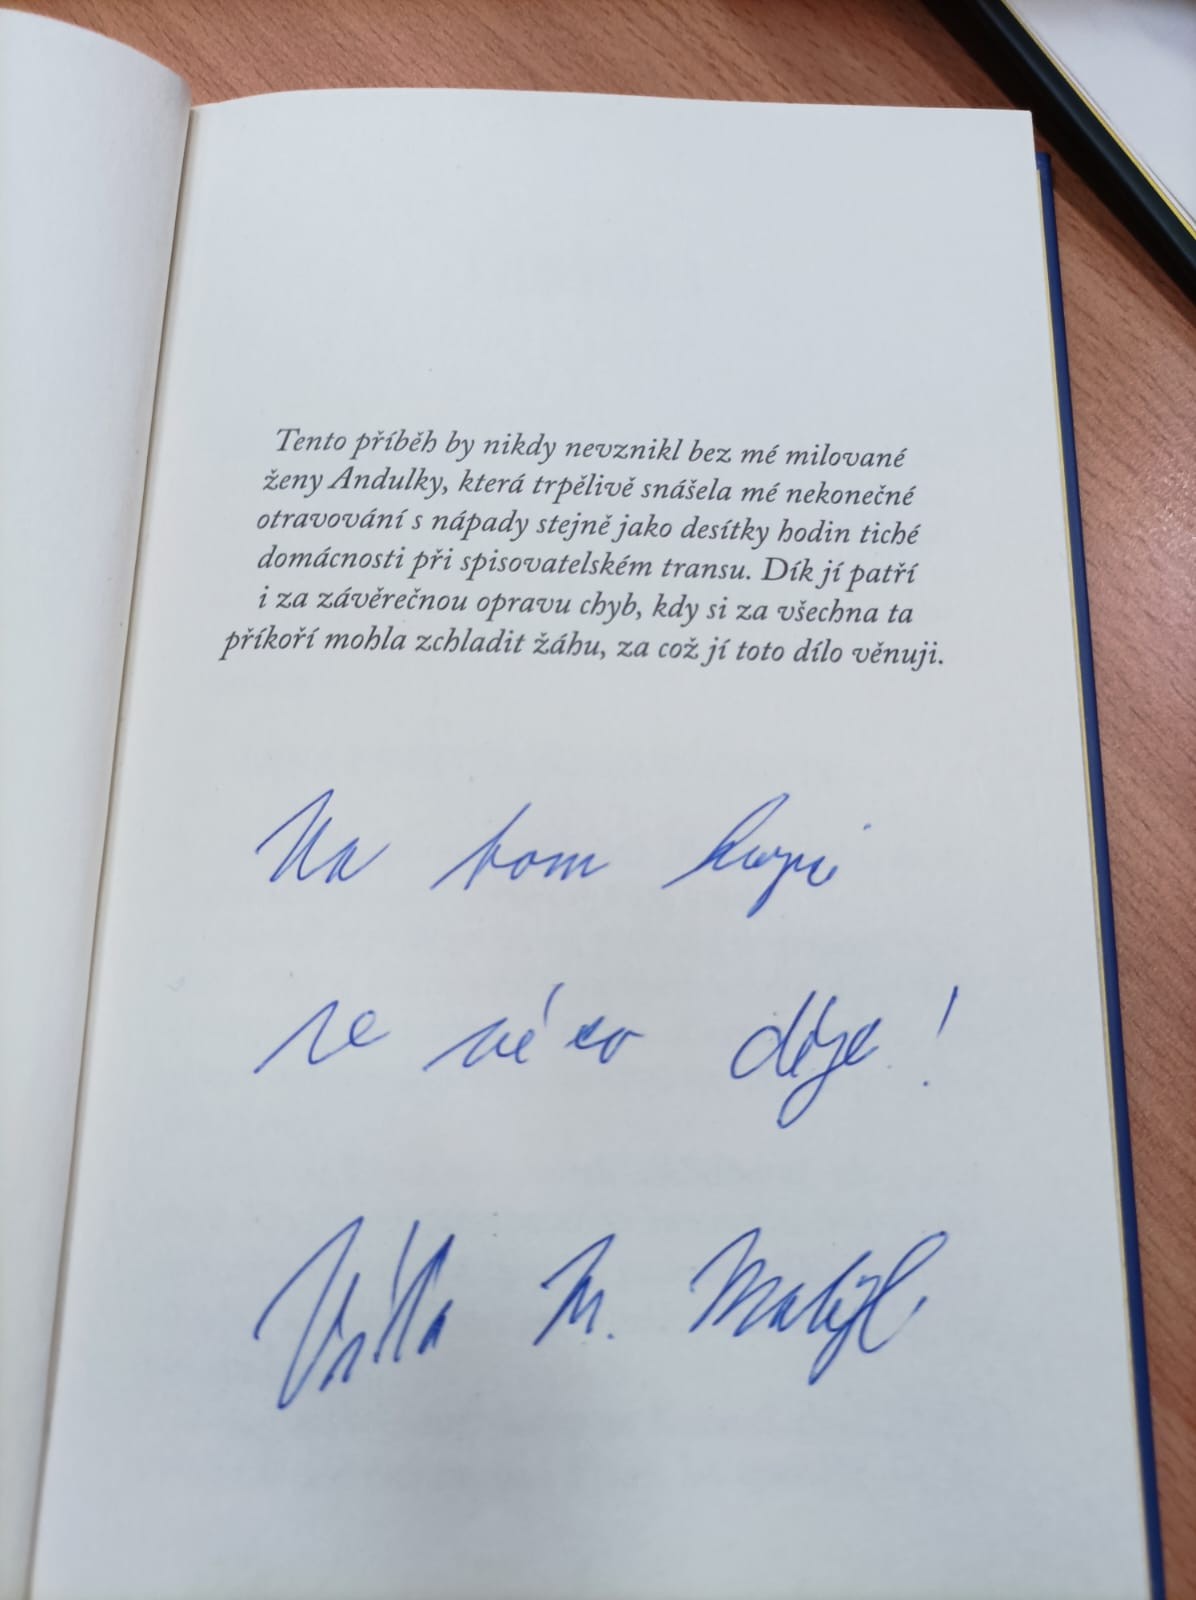 Tento příběh by nikdy nevznikl bez mé milované
ženy Andulky, která trpělivě snášela mé nekonečné
otravování s nápady stejně jako desítky hodin tiché
domácnosti při spisovatelském transu. Dík jí patří
i za závěrečnou opravu chyb, kdy si za všechna ta
příkoří mohla zchladit žáhu, za což jí toto dílo věnuji.
Na tom kopci
se něco děje!
M.